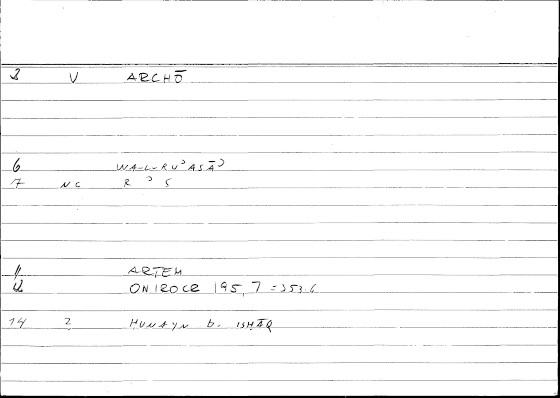 3 V ARCHŌ
6 WA-L-RUʾASĀʾ
7 NC R ʾ S
11 ARTEM
12 ONIROCR 195,7 = 353.6
14 2 HUNAYN b. ISHĀQ